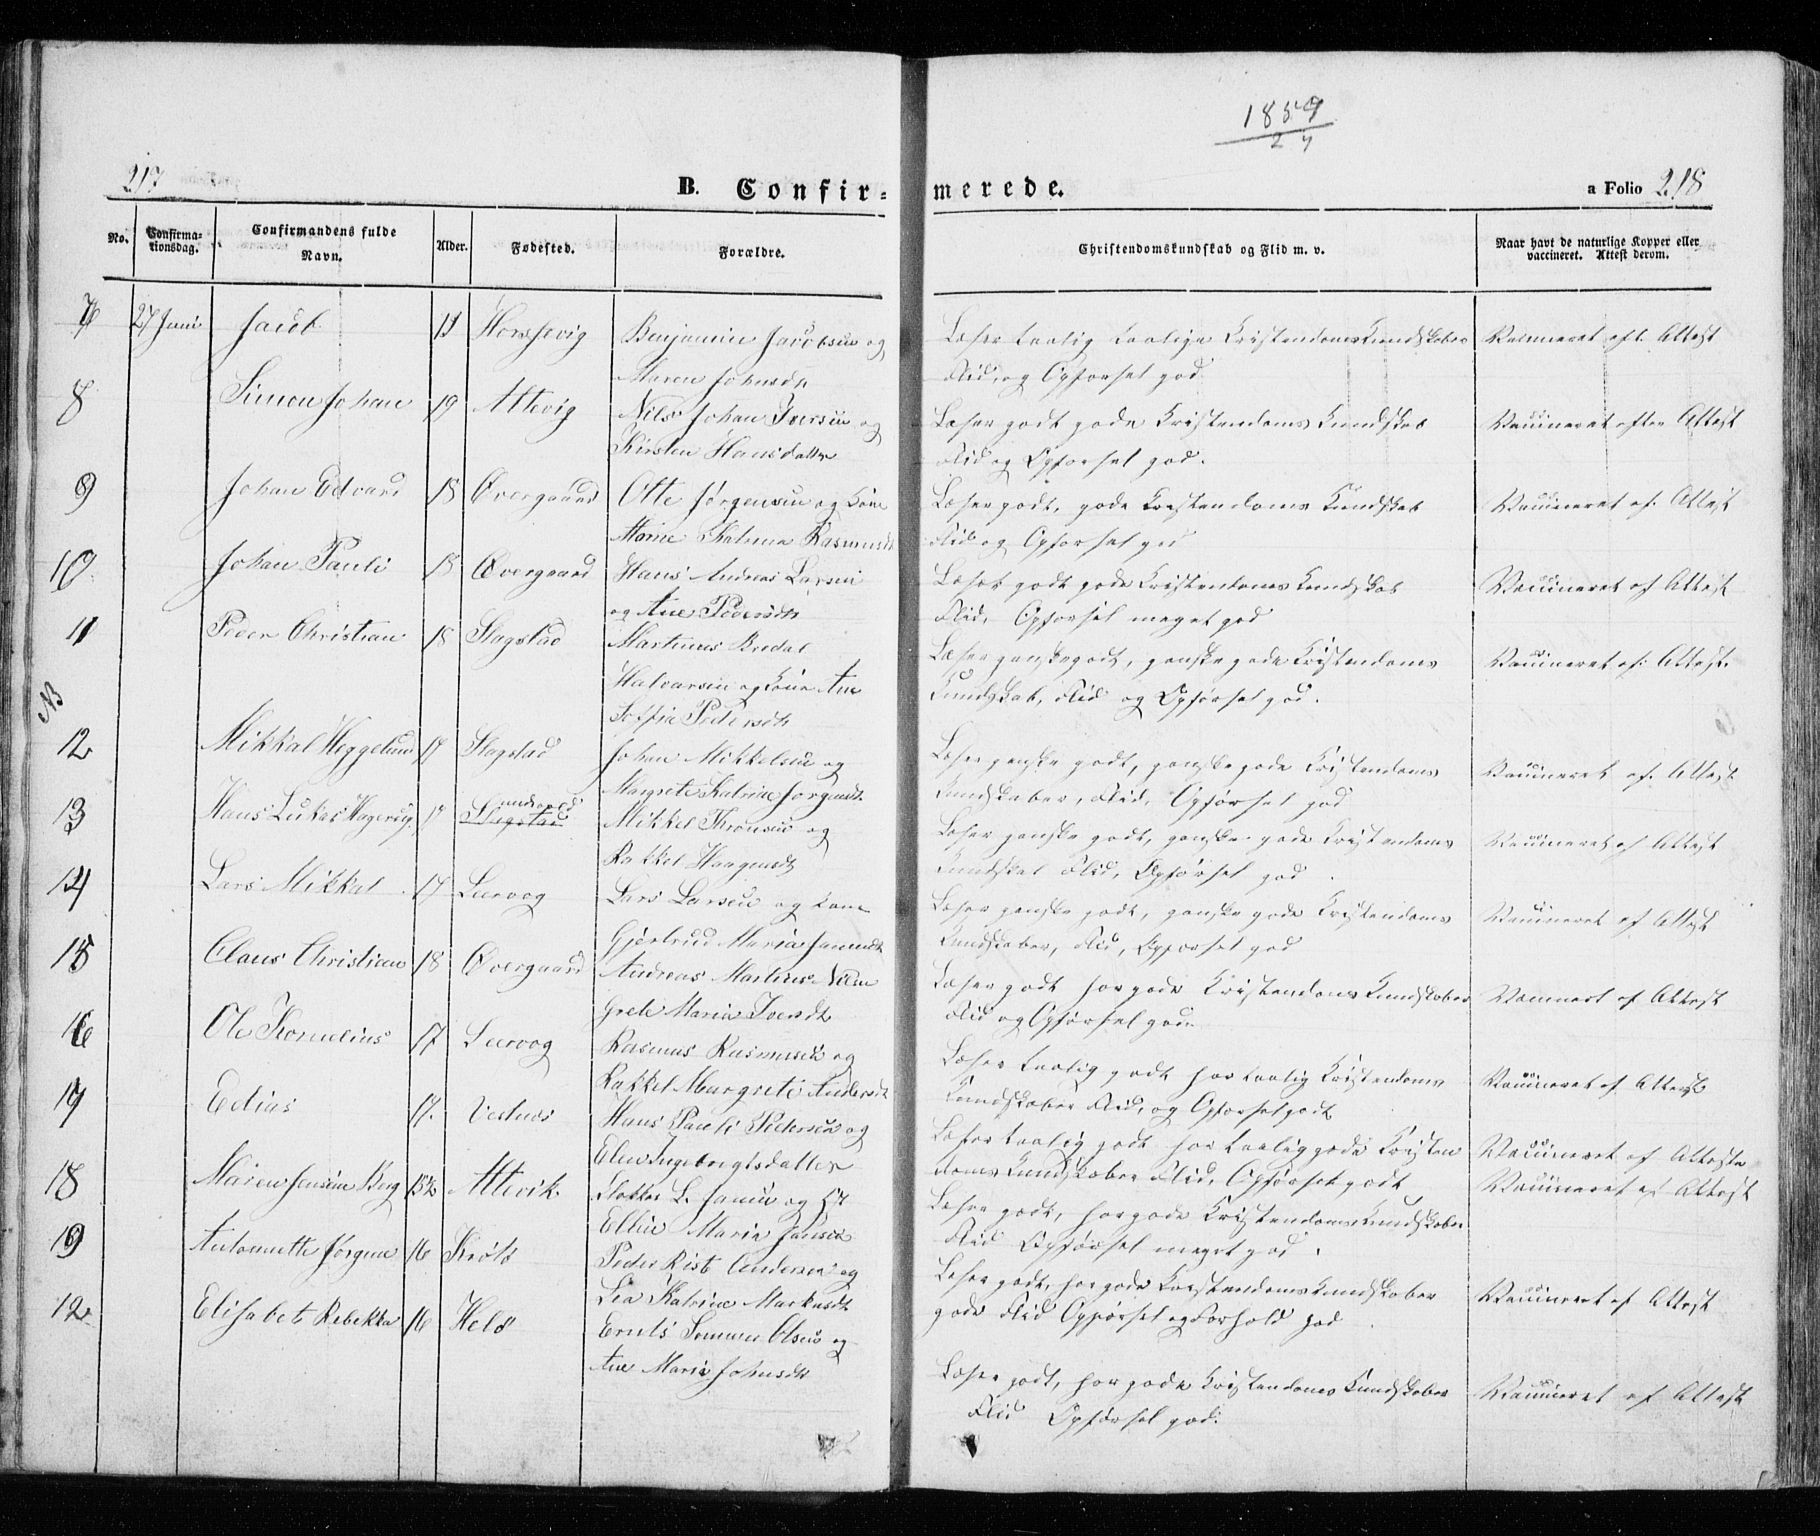 1857
27
217
B. Confir-
merede.
a Folio 218
No.
Confirma-
tionsdag.
Confirmandens fulde
Navn.
Alder.
Fødested.
Forældre.
Christendomskundskab og Flid m. v.
Naar havt de naturlige Kopper eller
vaccineret. Attest derom.
7 27 Juni Jacob Benjamin Jacobsen og
Maren Johnsdt
Læser taalig taalige Kristendoms Kundskaber
Flid, og Opførsel god
Vaccineret eft. Attest
8 Simon Johan 19 Altevig Nils Johan Iversen og
Kirsten Hansdatter
Læser godt gode Kristendoms Kundskab
Flid og Opførsel god.
Vaccineret efter Attest
9 Johan Edvard 18 Overgaard Otte Jørgensen og Kone
Marie Katrina Rasmusdt
Læser godt, gode Kristendoms Kundskab
Flid og Opførsel god
Vaccineret ef. Attest
10 Johan Pauli 18 Overgaard Hans Andreas Larsen
og Ane Pedersdt
Læser godt gode Kristendoms Kundskab
Flid, Opførsel meget god
Vaccineret ef Attest
11 Peder Christian 18 Slagstad Martinus Bredal
Halvarsen og Kone Ane
Soffia Pedersdt
Læser ganske godt, ganske gode Kristendoms
Kundskab, Flid og Opførsel god.
Vaccineret ef. Attest.
NB
12 Mikkal Heggelund 17 Slagstad Johan Mikkelsen og
Margrete Katrine Jørgensdt
Læser ganske godt, ganske gode Kristendoms
Kundskaber, Flid, Opførsel god
Vaccineret ef. Attest
13 Hans Lukas Hagerup 17 Slagstad Mikkel Thronsen og
Rakkel Haagensdt
Læser ganske godt, ganske gode Kristendoms
Kundskab Flid, Opførsel god.
Vaccineret ef Attest
14 Lars Mikkal 17 Leervog Lars Larsen og Kone
Gjertrud Maria Jensdt
Læser ganske godt, ganske gode Kristendoms
Kundskaber, Flid, Opførsel god
Vaccineret ef Attest
15 Claus Christian 18 Overgaard Andreas Martinus Nilsen
Grete Maria Iversdt
Læser godt har gode Kristendoms Kundskaber
Flid og Opførsel gode
Vaccineret ef Attest
16 Ole Kornelius 17 Leervog Rasmus Rasmusen og
Rakkel Margrete Andersdt
Læser taalig godt har taalig Kristendoms
Kundskaber Flid, og Opførsel godt
Vaccineret ef. Attest
17 Edias 17. Vestnes Hans Pauli Pedersen og
Elen Ingebrigtsdatter
Læser taalig godt har taalig gode Kristen
doms Kundskaber Flid, Opførsel godt
Vaccineret ef Attest
18 Maren Jensine Berg 15½ Altevik
Ellen Maria Jansen
Læser godt, har gode Kristendoms Kundskaber
Flid Opførsel meget god.
Vaccineret ef Attest
19 Antonette Jørgine 16 Peder Rist Andersen og
Lea Katrine Markusdt
Læser godt, har gode Kristendoms Kundskaber
gode Flid Opførsel og Forhold god
Vaccineret ef Attest
12 Elisabet Rebekka 16 Helø Olsen og
Ane Maria Johnsdt
Læser godt, har gode Kristendoms Kundskaber
Flid Opførsel god.
Vaccineret ef Attest